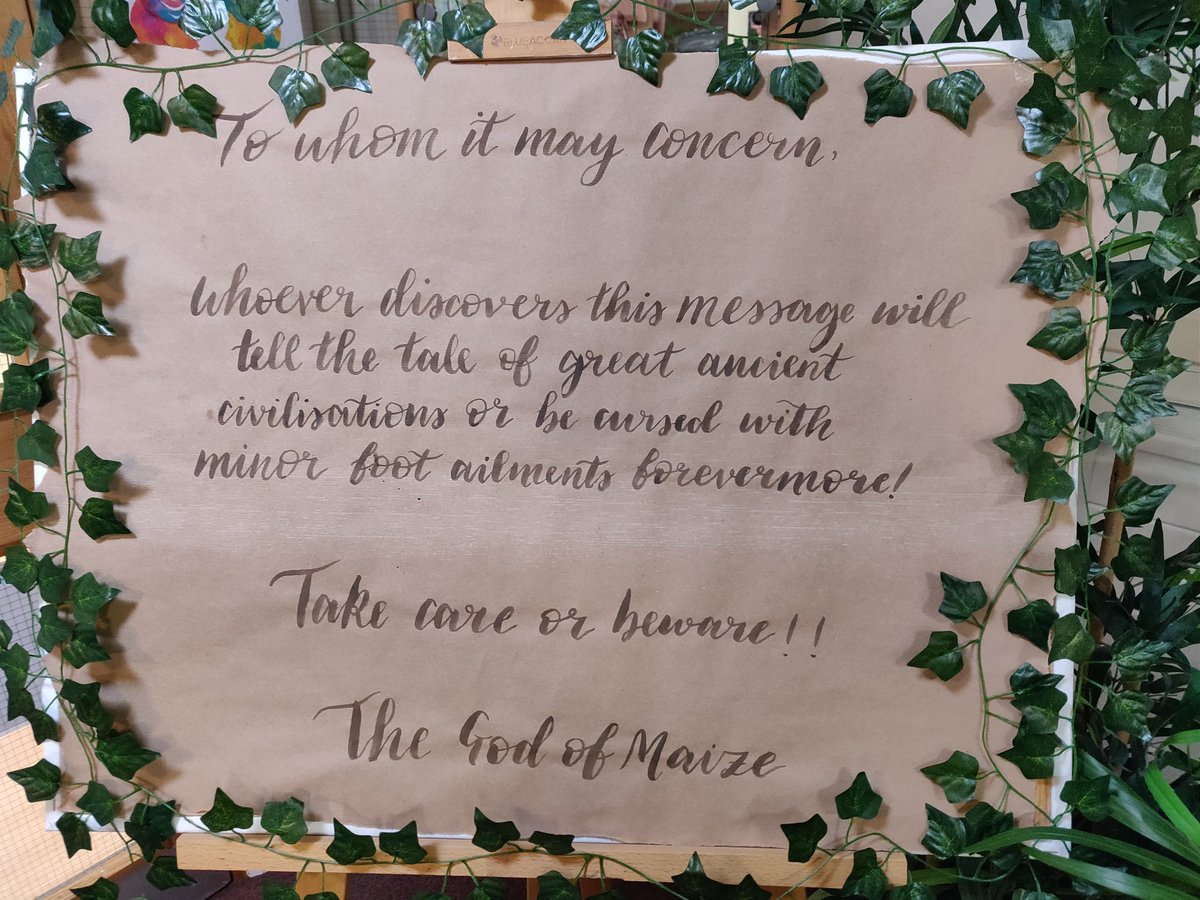 To whom it may concern,
Whoever discovers this message will
tell the tale of great ancient
civilisations or be cursed with
minor foot ailments forevermore!
Take care or beware!!
The God of Maize